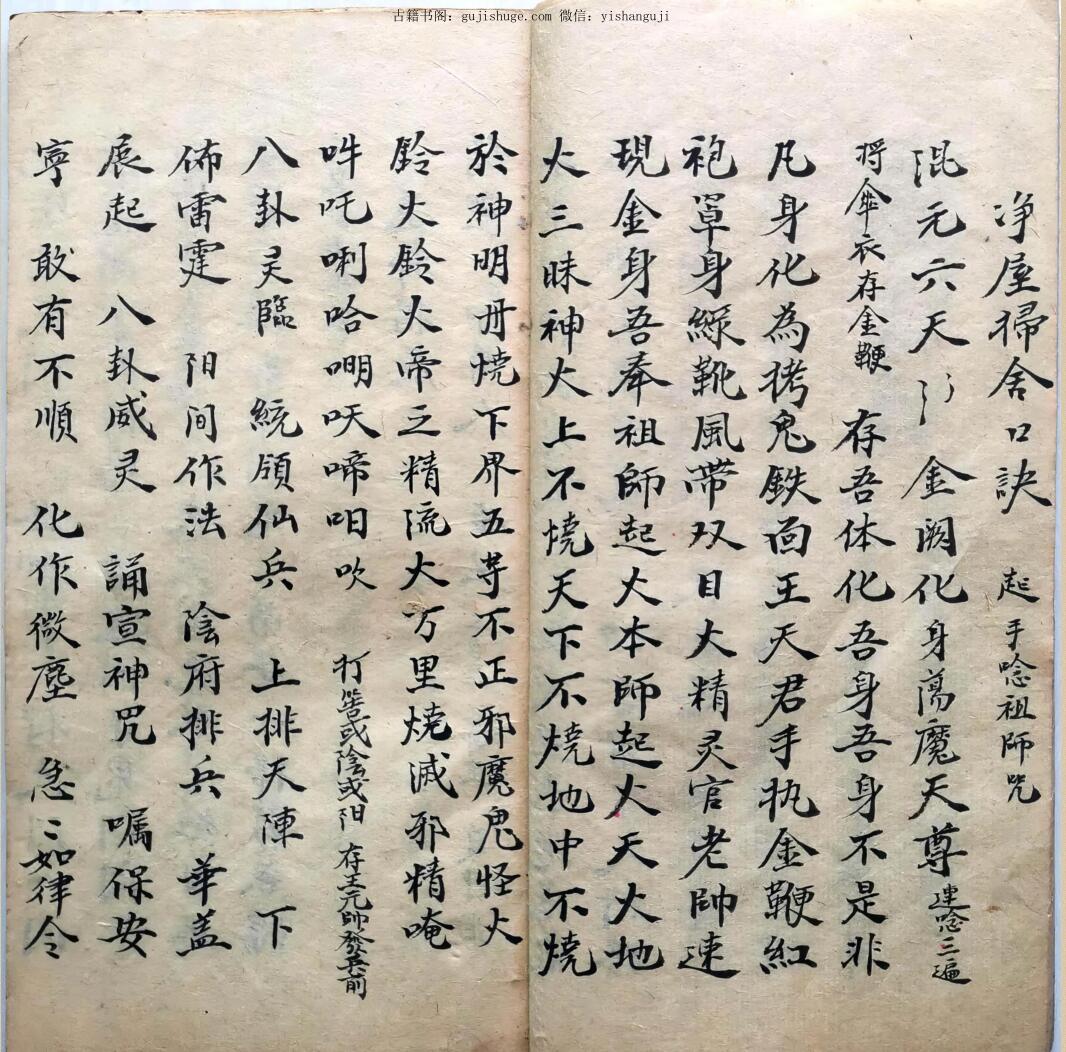 古籍书阁：gujishuge.com 微信：yishanguji
净屋掃舍口訣 起手唸祖師咒
混元六天 金阙化身蕩魔天尊 連唸三遍
将傘衣存金鞭 存吾体化吾身吾身不是非
凡身化為拷鬼鉄面王天君手执金鞭紅
袍罩身緑靴風帶双目火精灵官老帥速
現金身吾奉祖師起火本師起火天火地
火三昧神火上不燒天下不燒地中不燒
於神明毌燒下界五等不正邪魔鬼怪火
鈴火鈴火帝之精流火万里燒滅邪精唵
吽吒唎哈𠵇吠啼呾吹 打筶或陰或阳 存王元帥發兵前
八卦灵臨 統領仙兵 上排天陣 下
佈雷霆 阳间作法 陰府排兵 華盖
展起 八卦威灵 誦宣神咒 嘱保安
寧 敢有不順 化作微塵 急〻如律令